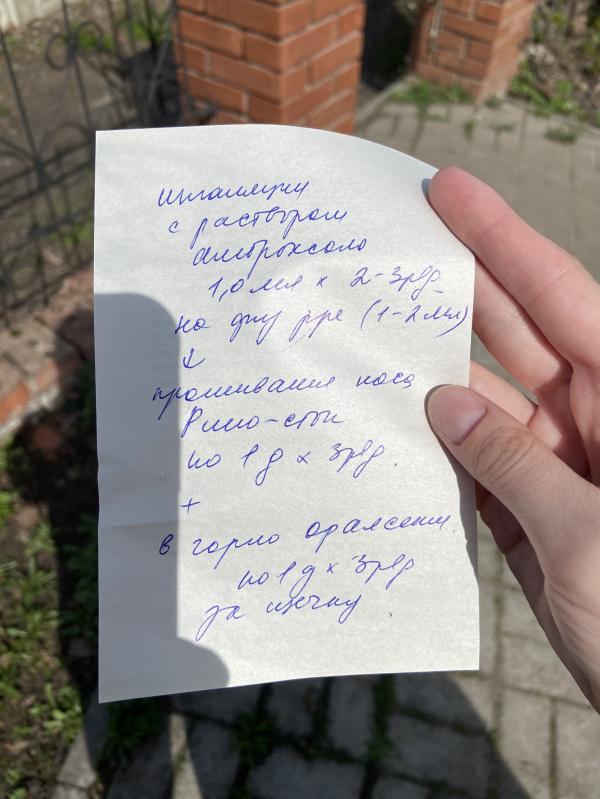 ингаляции
с раствором
амброксола
1,0 мл x 2-3р/д
на физ р-ре (1-2 мл)
↓
промывания носа
Рино-стоп
по 1 д x 3р/д.
+
в горло оралсепт
по 1 д x 3р/д
за щечку.